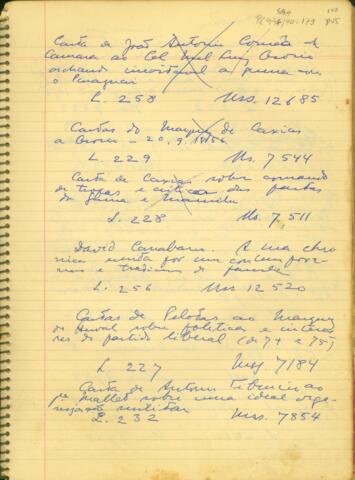 Carta de João Antonio Corrêa da
Camara ao Cel Mel Luiz Osorio
achando inevitavel a guerra com
o Paraguai
L. 258 Mss. 12685
Cartas do Marquez de Caxias
a Osorio - 20.9.1856
L. 229 Ms. 7544
Carta de Caxias sobre comando
de tropas e críticas das partes
L. 228 Ms. 7511
David Canabarro. A sua chro
nica escrita por um contempora-
neo e tradicions de familia
L. 256 Mss 12520
Cartas de Pelotas ao Marquez
do Herval sobre politicas e interes
ses do partido liberal (de 74 e 75)
L. 227 Mss. 7184
Carta de Antonio Tiburcio ao
Mallet sobre uma ideal orga-
nização militar
L. 232 Mss. 7854